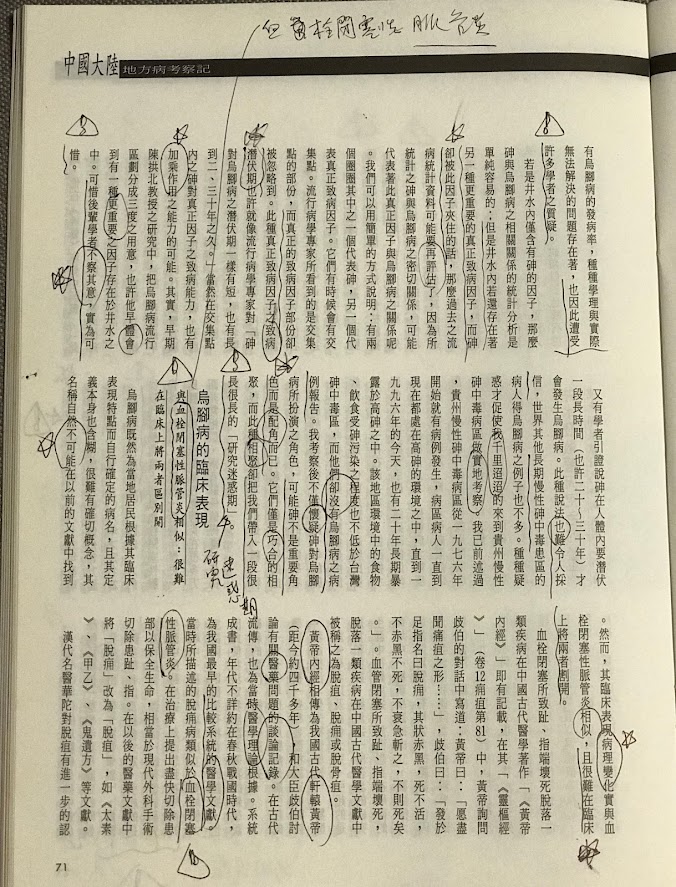 但與栓閉塞性脈管炎
中國大陸 地方病考察記
有烏腳病的發病率，種種學理與實際
無法解決的問題存在著，也因此遭受
許多學者之質疑。
若是井水內僅含有砷的因子，那麼
砷與烏腳病之相關關係的統計分析是
單純容易的；但是井水內若還存在著
另一種更重要的真正致病因子，而砷
卻被此因子夾住的話，那麼過去之流
病統計資料可能要再評估了，因為所
統計之砷與烏腳病之密切關係，可能
代表著此真正因子與烏腳病之關係呢
。我們可以用簡單的方式說明：有兩
個圈圈其中之一個代表砷，另一個代
表真正致病因子。它們有時候會有交
集點。流行病學專家所看到的是交集
點的部份，而真正的致病因子部份卻
被忽略到。此種真正致病因子之致病
潛伏期也許就像流行病學專家對「砷
對烏腳病之潛伏期一樣有短，也有長
到二、三十年之久。」當然在交集點
內之砷對真正因子之致病能力，也有
加乘作用之能力的可能。其實，早期
陳拱北教授之研究中，把烏腳病流行
區劃分成三度之用意，也許他早體會
到有一種更重要之因子存在於井水之
中。可惜後輩學者不察其意，實為可
惜。
又有學者引證說砷在人體內要潛伏
一段長時間（也許二十～三十年）才
會發生烏腳病。此種說法也難令人採
信，世界其他長期慢性砷中毒患區的
病人得烏腳病之例子也不多。種種疑
惑才促使我千里迢迢的來到貴州慢性
砷中毒病區做實地考察。我已前述過
，貴州慢性砷中毒病區從一九七六年
開始就有病例發生，病區病人一直到
現在都處在高砷的環境之中，直到一
九九六年的今天，也有二十年長期暴
露於高砷之中。該地區環境中的食物
、飲食受砷污染之程度也不低於台灣
砷中毒區，而他們卻沒有烏腳病之病
例報告。我考察後不僅懷疑砷對烏腳
病所扮演之角色，可能砷不是重要角
色而是配角而已。它們僅是巧合的相
聚，而此種相聚卻把我們帶入一段很
長很長的「研究迷惑期」。
研究迷惑期
烏腳病的臨床表現
與血栓閉塞性脈管炎相似：很難
在臨床上將兩者區別開
烏腳病既然為當地居民根據其臨床
表現特點而自行確定的病名，且其定
義本身也含糊，很難有確切概念，其
名稱自然不可能在以前的文獻中找到
。然而，其臨床表現病理變化實與血
栓閉塞性脈管炎相似，且很難在臨床
上將兩者割開。
血栓閉塞所致趾、指端壞死脫落一
類疾病在中國古代醫學著作「《黃帝
內經》」即有記載，在其「《靈樞經
》」（卷12癰疽第81）中，黃帝詢問
歧伯的對話中寫道：黃帝曰：「愿盡
聞癰疽之形……」，歧伯曰：「發於
足指名曰脫癰，其狀赤黑，死不活，
不赤黑不死，不衰急斬之，不則死矣
。」。血管閉塞所致趾、指端壞死，
脫落一類疾病在中國古代醫學文獻中
被稱之為脫疽、脫癰或脫骨疽。
黃帝內經相傳為我國古代軒轅黃帝
（距今約四千多年），和大臣歧伯討
論有關醫藥問題的談論記錄。在古代
流傳，也為當時醫學理論根據。系統
成書，年代不詳約在春秋戰國時代，
為我國最早的比較系統的醫學文獻。
當時所描述的脫癰病類似於血栓閉塞
性脈管炎。在治療上提出盡快切除患
部以保全生命，相當於現代外科手術
切除患趾、指。在以後的醫藥文獻中
將「脫癰」改為「脫疽」，如《太素
》、《甲乙》、《鬼遺方》等文獻。
漢代名醫華陀對脫疽有進一步的認
71